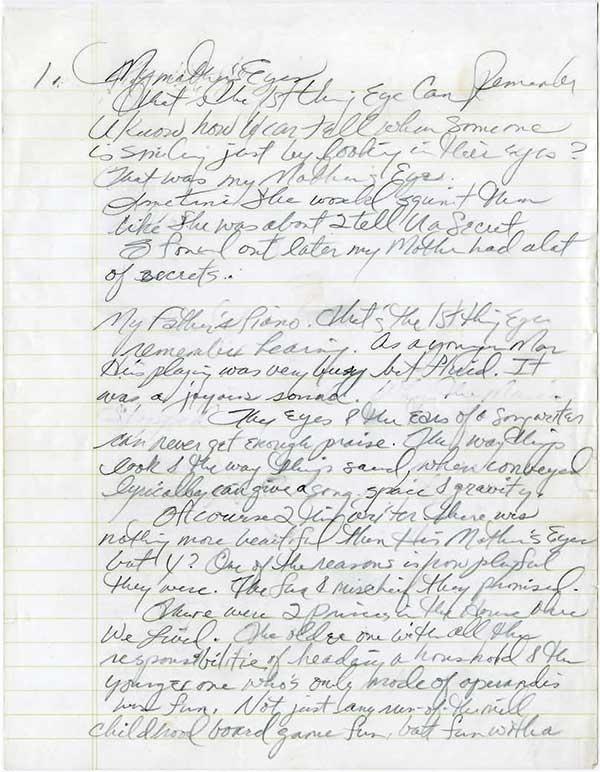 1. My mother's Eyes
That's the 1st thing Eye Can Remember
U know how U can tell when someone
is smiling just by looking in their eyes?
That was my Mother's Eyes.
Sometimes She would squint them
like She was about 2 tell U a Secret
Eye found out later my Mother had alot
of secrets.
My Father's Piano. That's the 1st thing Eye
remember hearing. As a younger Man
His playing was very busy but fluid. It
was a joyous sound.
The Eyes & the Ears of a Songwriter
can never get enough praise. The way things
look & the way things sound, when conveyed
lyrically can give a song space & gravity.
Of course 2 this writer there was
nothing more beautiful than His Mother's Eyes
but Y? One of the reasons is how playful
they were. The fun & mischief they promised.
There were 2 Princes in the House where
We lived. The older one with all the
responsibilities of heading a household & the
younger one who's only mode of operandis
was fun. Not just any run-of-the-mill
childhood board game fun, but fun with a